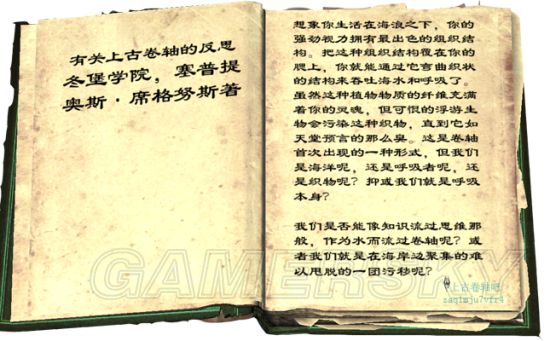 有关上古卷轴的反思
冬堡学院，塞普提
奥斯·席格努斯著
想象你生活在海浪之下，你的
强劲视力拥有最出色的组织结
构。把这种组织结构覆在你的
腮上，你就能通过它弯曲织状
的结构来吞吐海水和呼吸了。
虽然这种植物物质的纤维充满
着你的灵魂，但可恨的浮游生
物会污染这种织物，直到它如
天堂预言的那么臭。这是卷轴
首次出现的一种形式，但我们
是海洋呢，还是呼吸者呢，还
是织物呢？抑或我们就是呼吸
本身？
我们是否能像知识流过思维那
般，作为水而流过卷轴呢？或
者我们就是在海岸边聚集的难
以甩脱的一团污秽呢？
GAMERSKY
上古卷轴吧
zaq1mju7vfr4